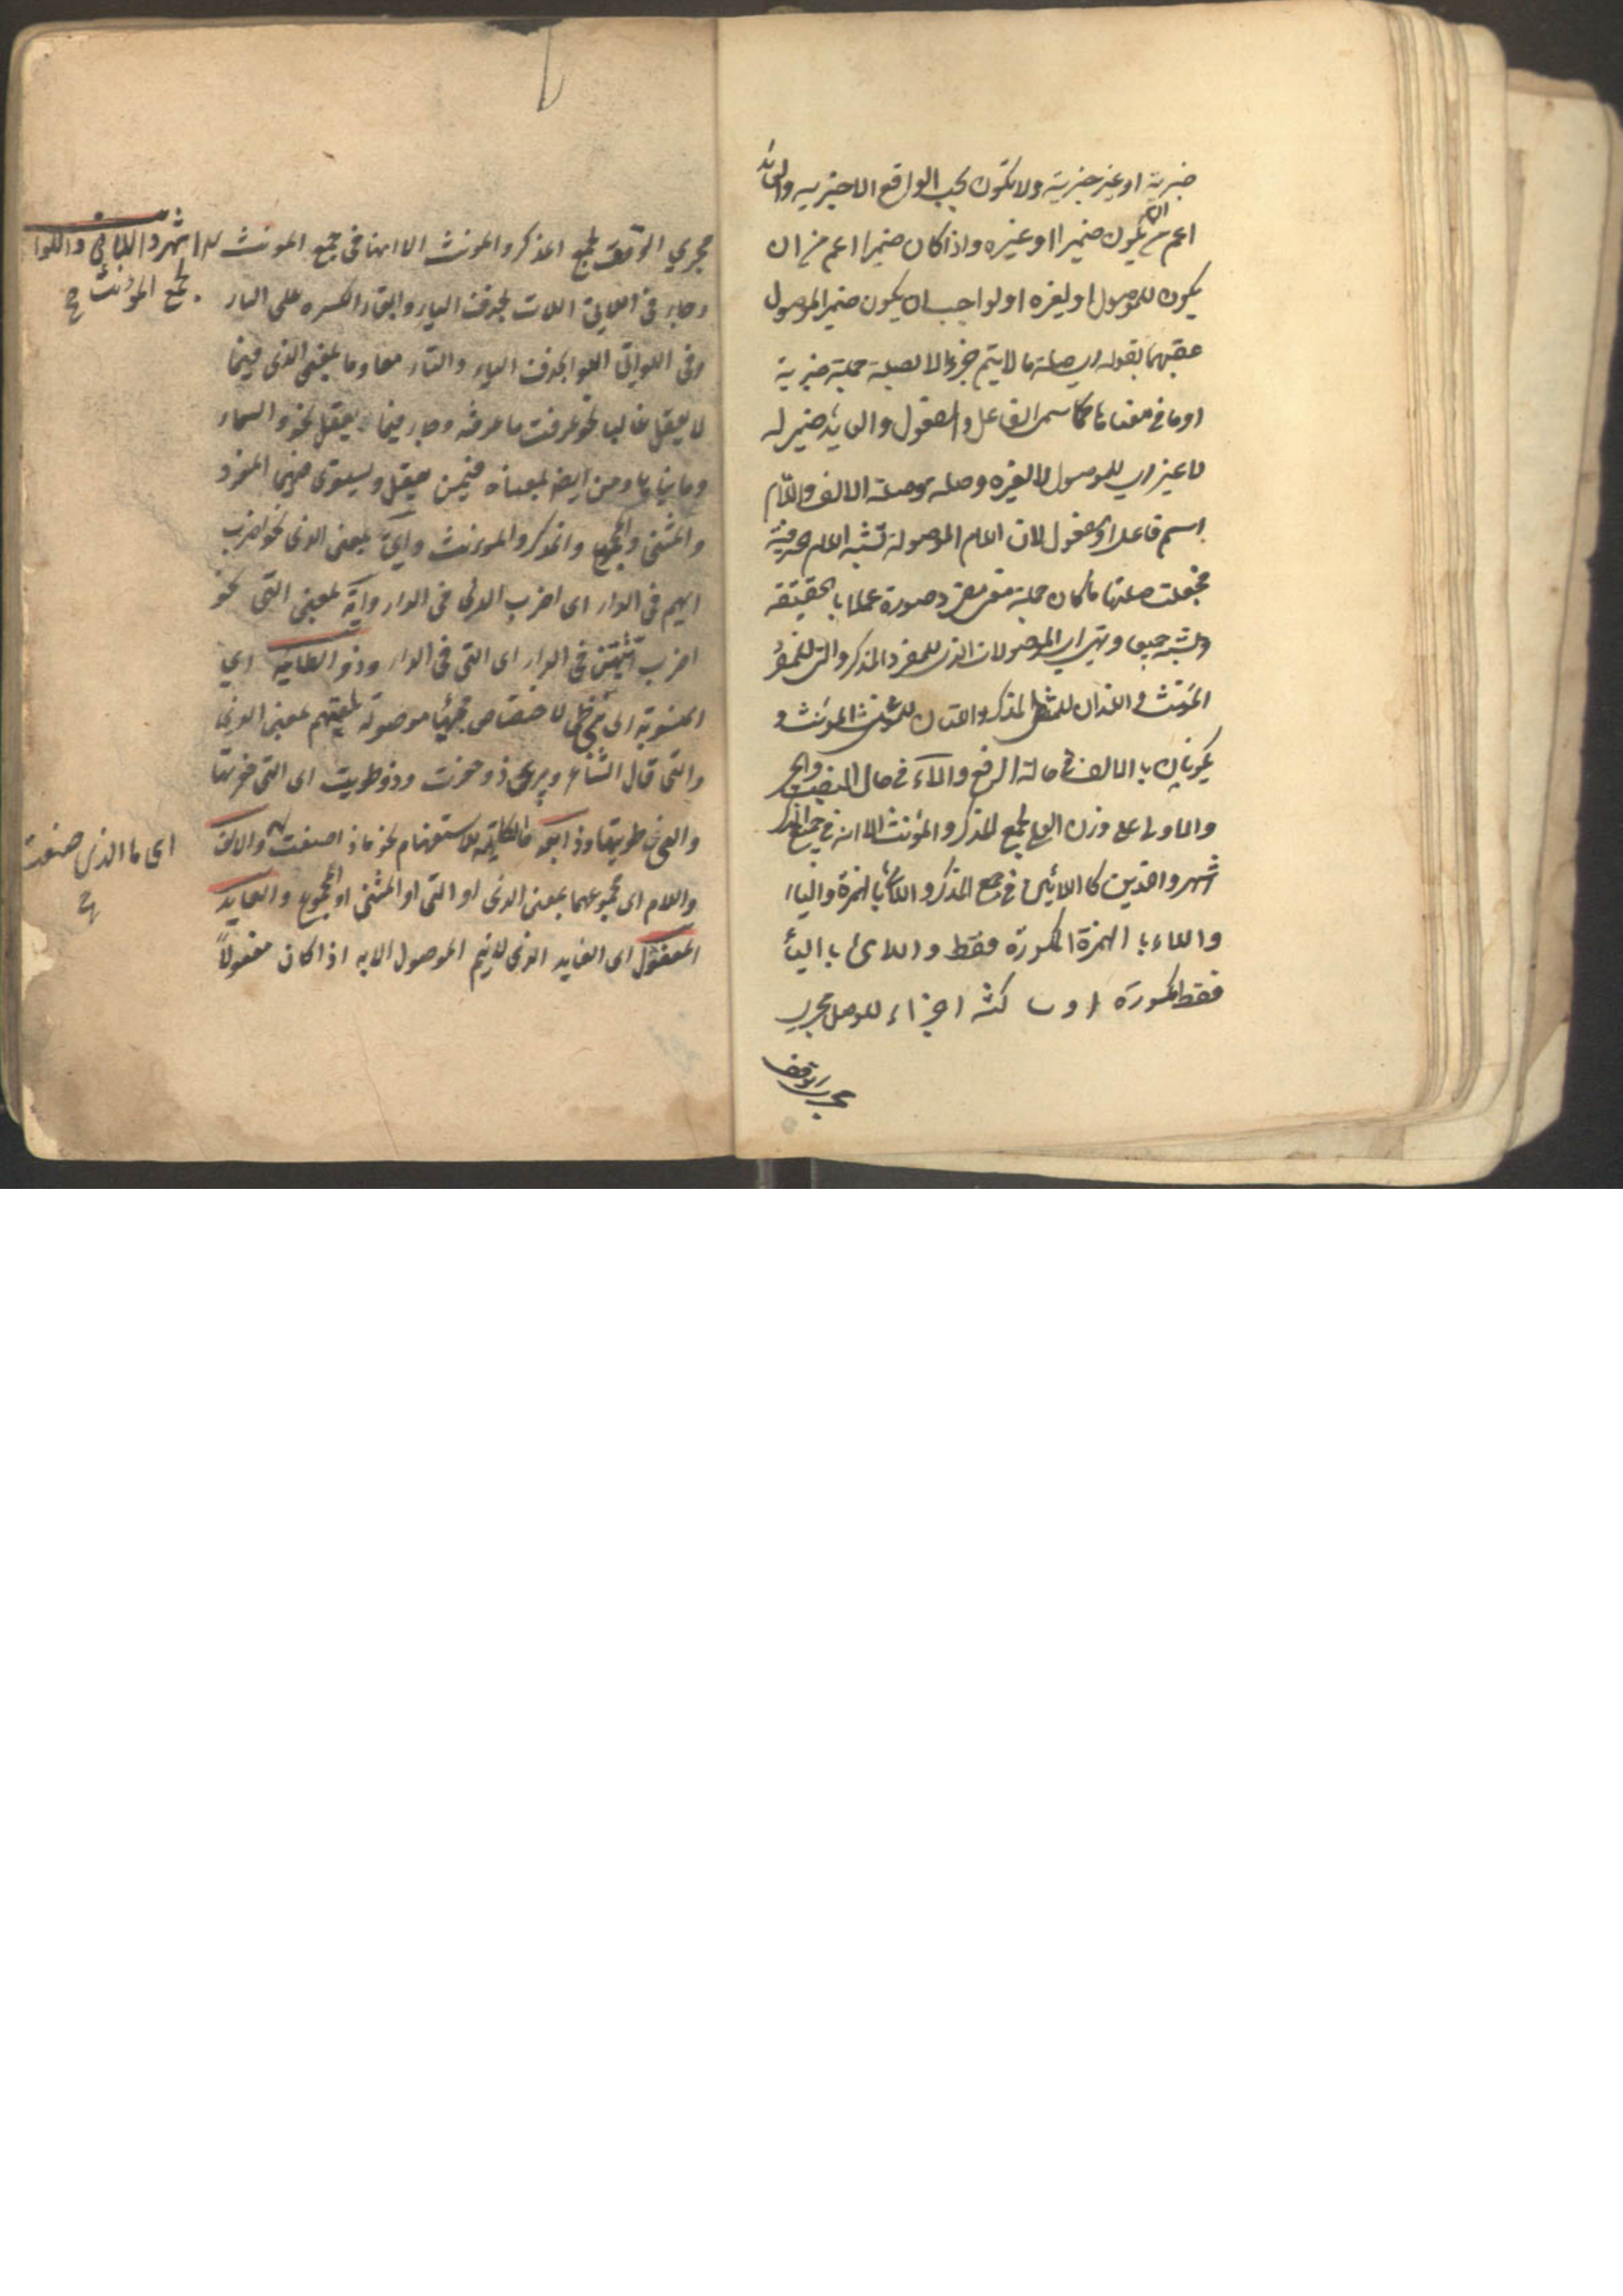 خبرية او غير خبرية ولا يكون بحسب الواقع الا خبرية والعائد
اعم من ان يكون ضميرا او غيره واذا كان ضميرا اعم من ان
يكون للموصول او لغيره او لواجب ان يكون ضمير الموصول
عقبهما بقوله اي صلة ما لا يتم جزءا الا بصلة جملة خبرية
او ما في معناها كاسم الفاعل والمفعول والعايد ضمير له
لا غير اي للموصول لا لغيره وصله وصلة الالف واللام
اسم فاعل او مفعول لان اللام الموصولة تشبه اللام الحرفية
فجعلت صلتها ما كان جملة معنى مفرد صورة عملا بالحقيقة
والشبه جميعا وهي اي الموصولات الذي للمفرد المذكر والتي للمفرد
المؤنث و اللذان للمثنى المذكر واللتان للمثنى المؤنث و
يكونان بالالف في حالة الرفع والياء في حال النصب والجر
والاولى على وزن العلى لجمع المذكر والمؤنث الا انه في جمع المذكر
اشهر والذين كاللائين في جمع المذكر واللائى بالهمزة والياء
واللاء بالهمزة المكسورة فقط واللاى بالياء
فقط مكسورة او ساكنة اجراء للوصل مجرى
مجرى الوقف
مجرى الوقف لجمع المذكر والمونث الا انها في جمع المونث اشهر واللاتي واللوا
لجمع المؤنث صح
وجاء في اللاتي اللات بحذف الياء وابقاء الكسره على التاء
وفى اللواتى اللوا بحذف الياء والتاء معا وما بمعنى الذى فيما
لا يعقل غالبا نحو عرفت ما عرفته وجاء فيما يعقل نحو والسماء
وما بناها ومن ايضا بمعناه فيمن يعقل ويستوى فيهما المفرد
والمثنى والمجموع والمذكر والمونث واىّ بمعنى الذى نحو اضرب
ايهم فى الدار اى اضرب الذى فى الدار واية بمعنى التى نحو
اضرب ايتهن فى الدار اى التى فى الدار وذو الطائية اي
المنسوبة الى بني طي لاختصاص مجيئها موصولة بلغتهم بمعنى الذى
والتى قال الشاعر وبيرى ذو حفرت وذو طويت اى التى حفرتها
والتى طويتها وذا بعد ما الكاينة للاستفهام نحو ماذا صنعت والالف
اى ما الذى صنعت
صح
واللام اى مجموعهما بمعنى الذى او التى او المثنى او المجموع والعايد
المفعول اى العايد الذى لا يتم الموصول الا به اذا كان مفعولاً